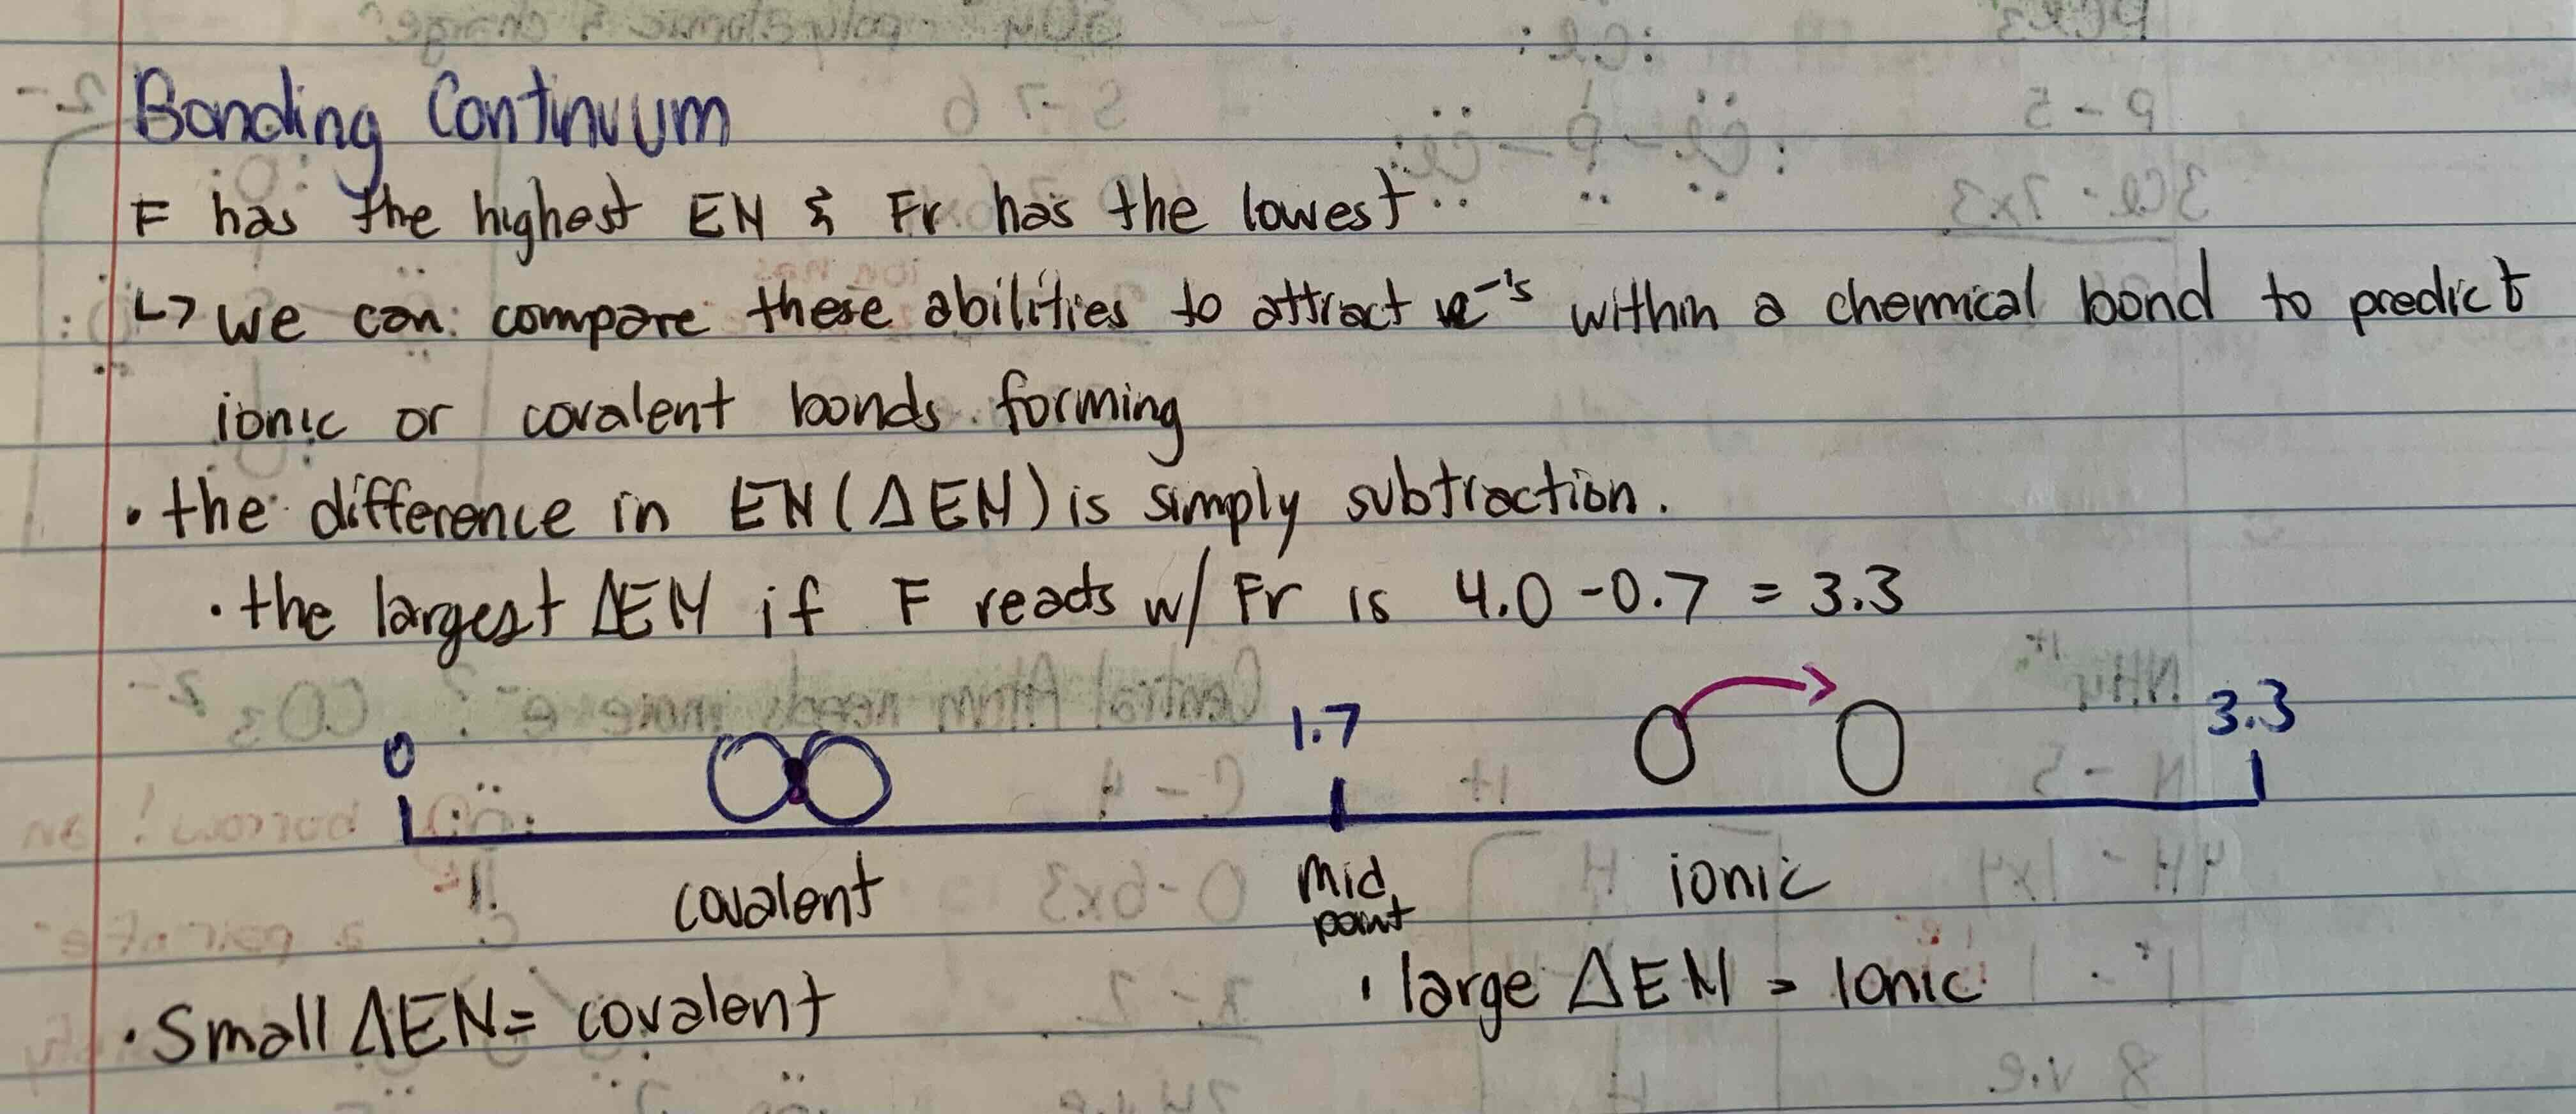 Bonding Continuum
F has the highest EN & Fr has the lowest
↳ we can compare these abilities to attract e⁻'s within a chemical bond to predict
ionic or covalent bonds forming
• the difference in EN (ΔEN) is simply subtraction.
• the largest ΔEN if F reacts w/ Fr is 4.0 - 0.7 = 3.3
0 1.7 3.3
covalent mid point ionic
• Small ΔEN = covalent • large ΔEN = ionic